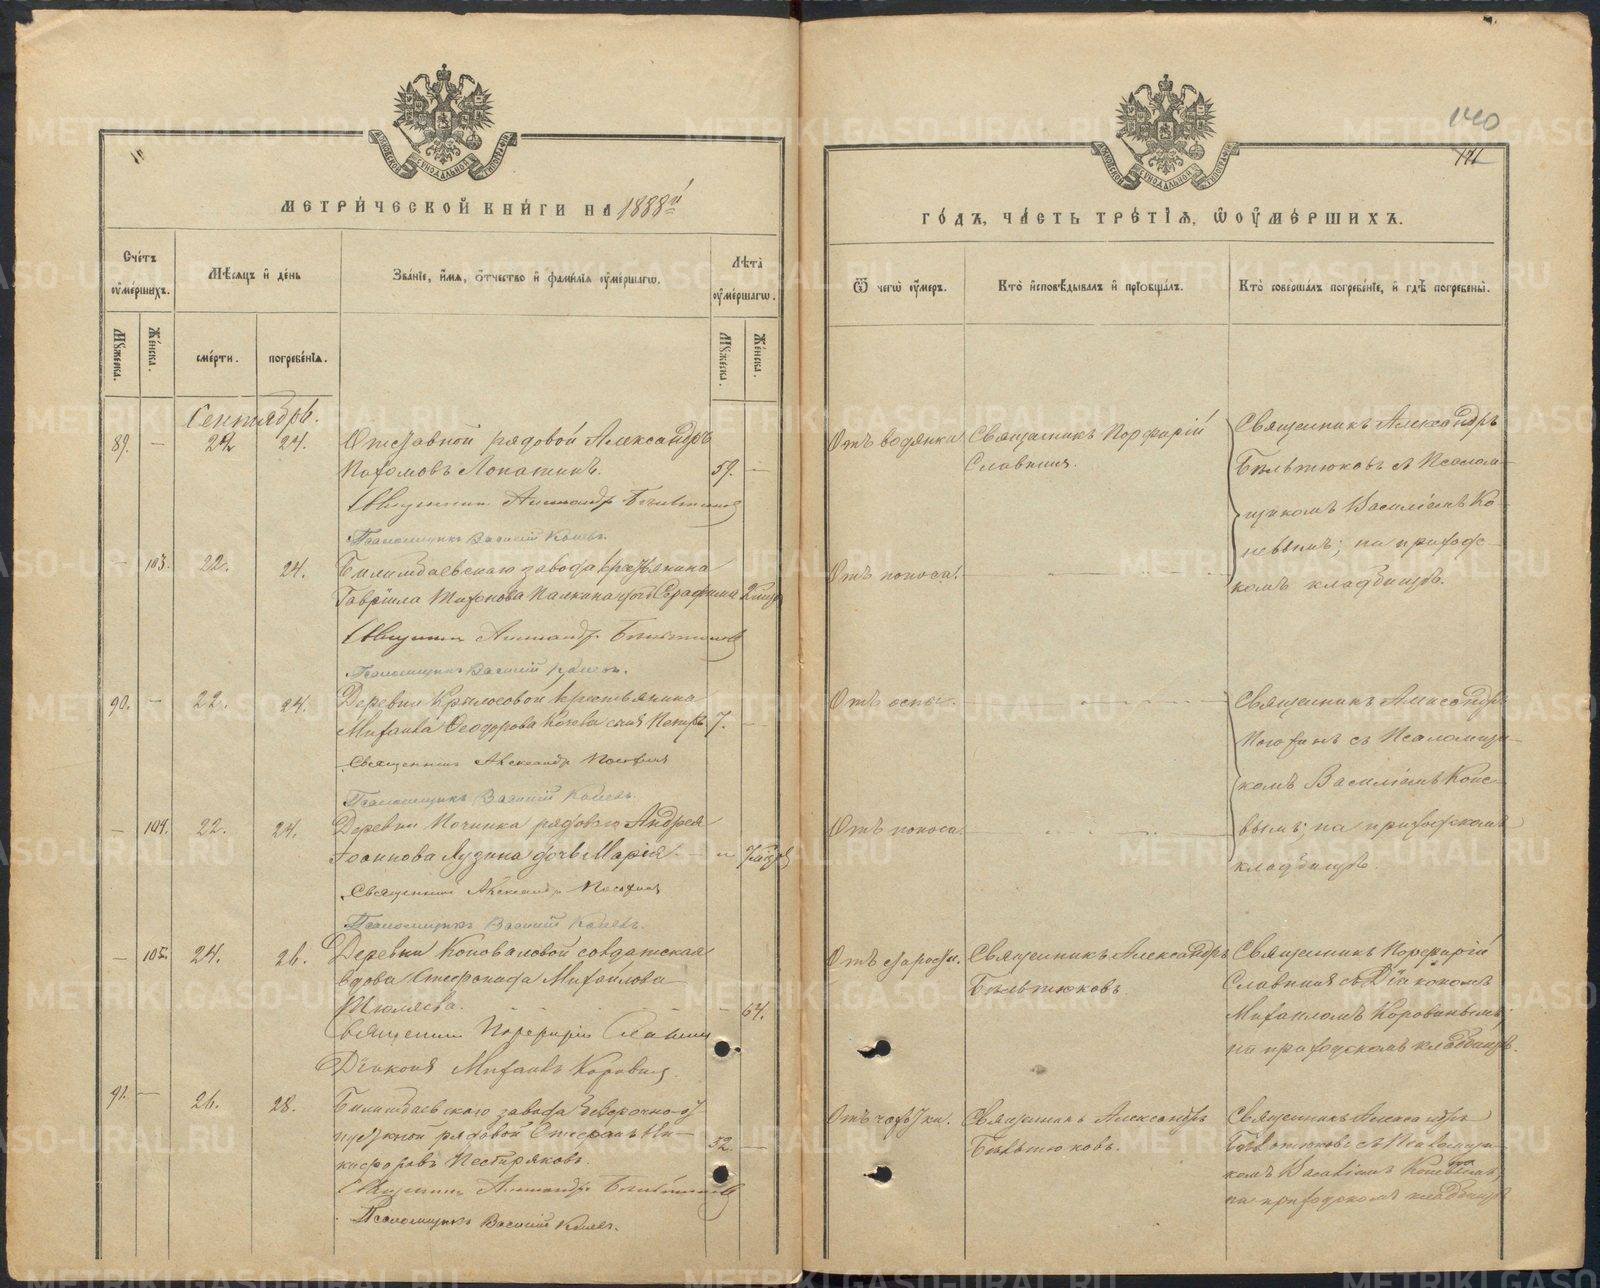 МЕТРИ́ЧЕСКОЙ КНИ́ГИ НА 1888й
Сче́тъ ᲂу҆ме́ршихъ.
Мѣ́сяцъ и҆ де́нь
Зва́нїе, и҆́мя, ѻ҆́тчество и҆ фами́лїя ᲂу҆ме́ршагѡ.
Лѣ́та ᲂу҆ме́ршагѡ.
Мꙋ́жеска.
Же́нска.
сме́рти.
погребе́нїя.
Мꙋ́жеска.
Же́нска.
Сентябрь.
89. — 22 24. Отставной рядовой Александръ
Пахомовъ Лопатинъ. 59. —
Священникъ Александръ Бѣльтюковъ
Псаломщикъ Василій Коневъ.
— 103. 22. 24. Билимбаевскаго завода крестьянина
Гавріила Тихонова Палкина дочь Серафима
Священникъ Александръ Бѣльтюковъ
Псаломщикъ Василій Коневъ.
90. — 22. 24. Деревни Крылосовой крестьянина
Михаила Ѳеодорова Кочева сынъ Петръ 7. —
Священникъ Александръ
Псаломщикъ Василій Коневъ.
— 104. 22. 24. Деревни Починка рядоваго Андрея
Іоаннова Лузина дочь Марія
Священникъ Александръ
Псаломщикъ Василій Коневъ.
— 105. 24. 26. Деревни Коноваловой солдатская
вдова Стефанида Михайлова
64.
Священникъ Порфирій Славнинъ
Діаконъ Михаилъ Коровинъ.
91. — 26. 28. Билимбаевскаго завода безсрочно-от
пускной рядовой Стефанъ Ни-
кифоровъ Пестряковъ. 52. —
Священникъ Александръ Бѣльтюковъ
Псаломщикъ Василій Коневъ.
140
141
ГО́ДЪ, ЧА́СТЬ ТРЕ́ТЇЯ, Ѡ҆ ОУ҆МЕ́РШИХЪ.
Ѿ чегѡ̀ ᲂу҆́меръ.
Кто̀ и҆сповѣ́дывалъ и҆ прїѡбща́лъ.
Кто̀ соверша́лъ погребе́нїе, и҆ гдѣ̀ погребены̀.
Отъ водянки Священникъ Порфирій
Славнинъ.
Священникъ Александръ
Бѣльтюковъ съ Псалом-
щикомъ Василіемъ Ко-
невымъ; на приходс-
комъ кладбищѣ.
Отъ поноса.
Отъ оспы.
Священникъ Александръ
съ Псаломщи-
комъ Василіемъ Коне-
вымъ; на приходскомъ
кладбищѣ.
Отъ поноса.
Отъ старости. Священникъ Александръ
Бѣльтюковъ.
Священникъ Порфирій
Славнинъ съ Діакономъ
Михаиломъ Коровинымъ;
на приходскомъ кладбищѣ.
Отъ чахотки. Священникъ Александръ
Бѣльтюковъ.
Священникъ Александръ
Бѣльтюковъ съ Псаломщи-
комъ Василіемъ Коневымъ;
на приходскомъ кладбищѣ